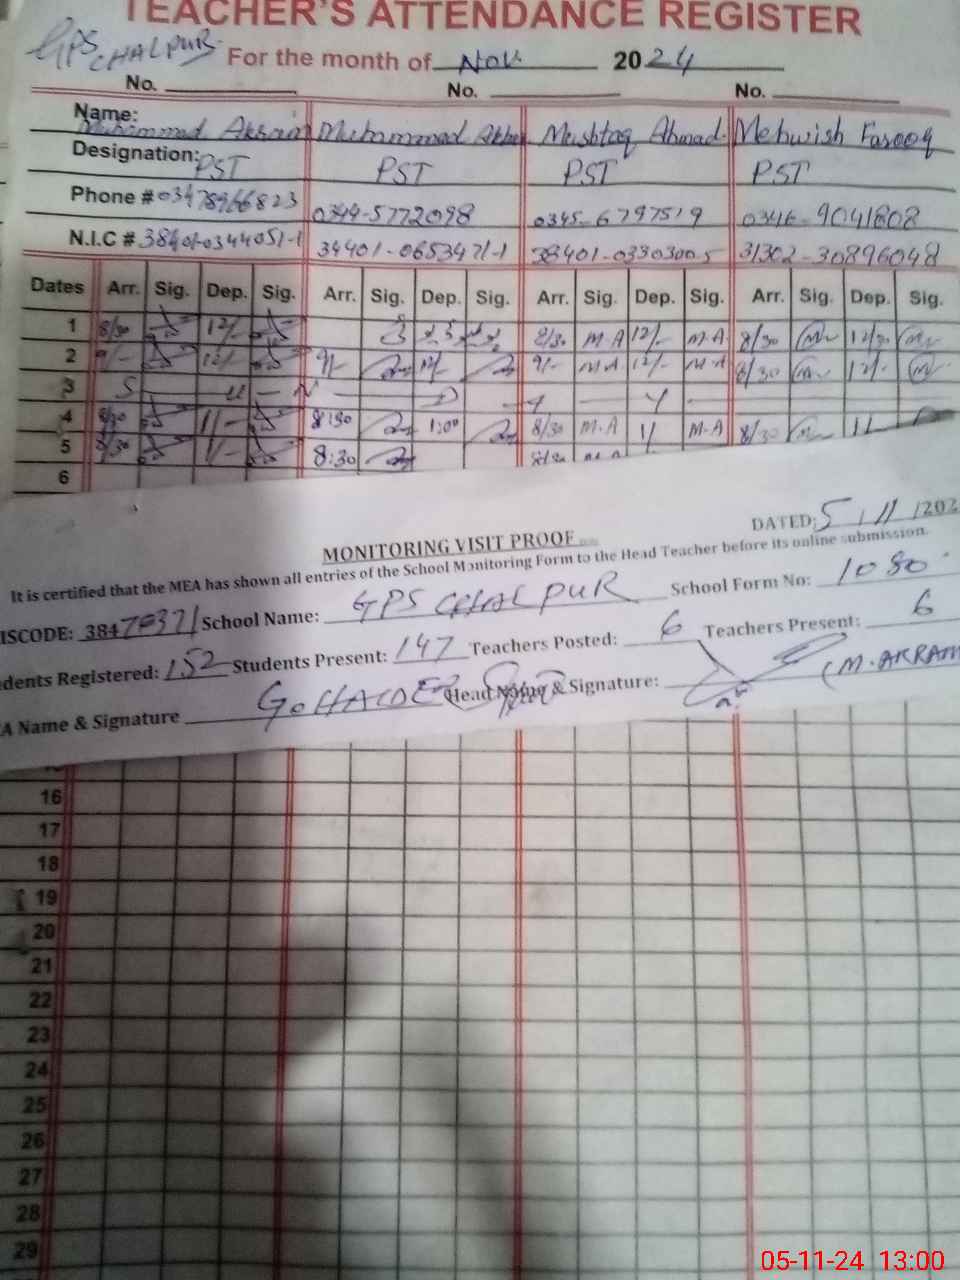 TEACHER'S ATTENDANCE REGISTER
GPS CHALPUR
For the month of Nov 2024
No. No. No.
Name: Muhammad Akram Muhammad Mushtaq Ahmad. Mehwish Farooq
Designation: PST PST PST PST
Phone # 03478966823 0344-5772098 0345-6797519 0346-9041808
N.I.C # 38401-0344051-1 34401-0653471-1 38401-0330300-5 31302-30896048
Dates Arr. Sig. Dep. Sig. Arr. Sig. Dep. Sig. Arr. Sig. Dep. Sig. Arr. Sig. Dep. Sig.
1 8/30 12/- 8/30 M.A 12/- M.A 8/30 12/30
2 9/- 12/- 9/- 12/- 9/- M.A 12/- M.A 8/30 12/-
3 S u N D
4 8/30 11/- 8:30 1:00 8/30 M.A 11 M.A 8/30 11
5 8/30 8:30 8/30 M.A
6
MONITORING VISIT PROOF
DATED: 5/11/202
It is certified that the MEA has shown all entries of the School Monitoring Form to the Head Teacher before its online submission.
ISCODE: 38470371 School Name: GPS CHALPUR School Form No: 1080
dents Registered: 152 Students Present: 147 Teachers Posted: 6 Teachers Present: 6
A Name & Signature Head Name & Signature: (M. AKRAM
16
17
18
19
20
21
22
23
24
25
26
27
28
29
05-11-24 13:00